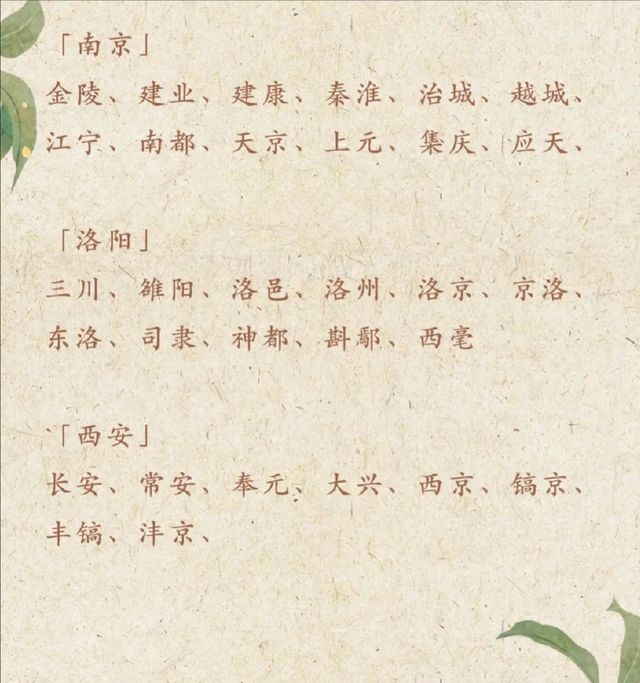 「南京」
金陵、建业、建康、秦淮、治城、越城、
江宁、南都、天京、上元、集庆、应天、
「洛阳」
三川、雒阳、洛邑、洛州、洛京、京洛、
东洛、司隶、神都、斟鄩、西毫
「西安」
长安、常安、奉元、大兴、西京、镐京、
丰镐、沣京、